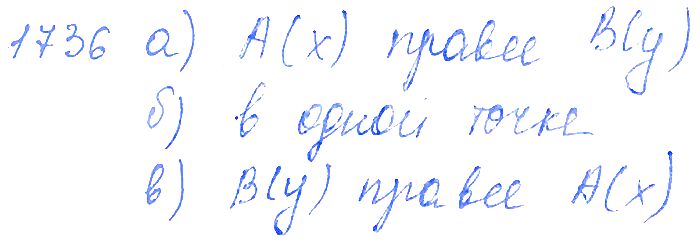 1736 а) A(x) правее B(y)
б) в одной точке
в) B(y) правее A(x)